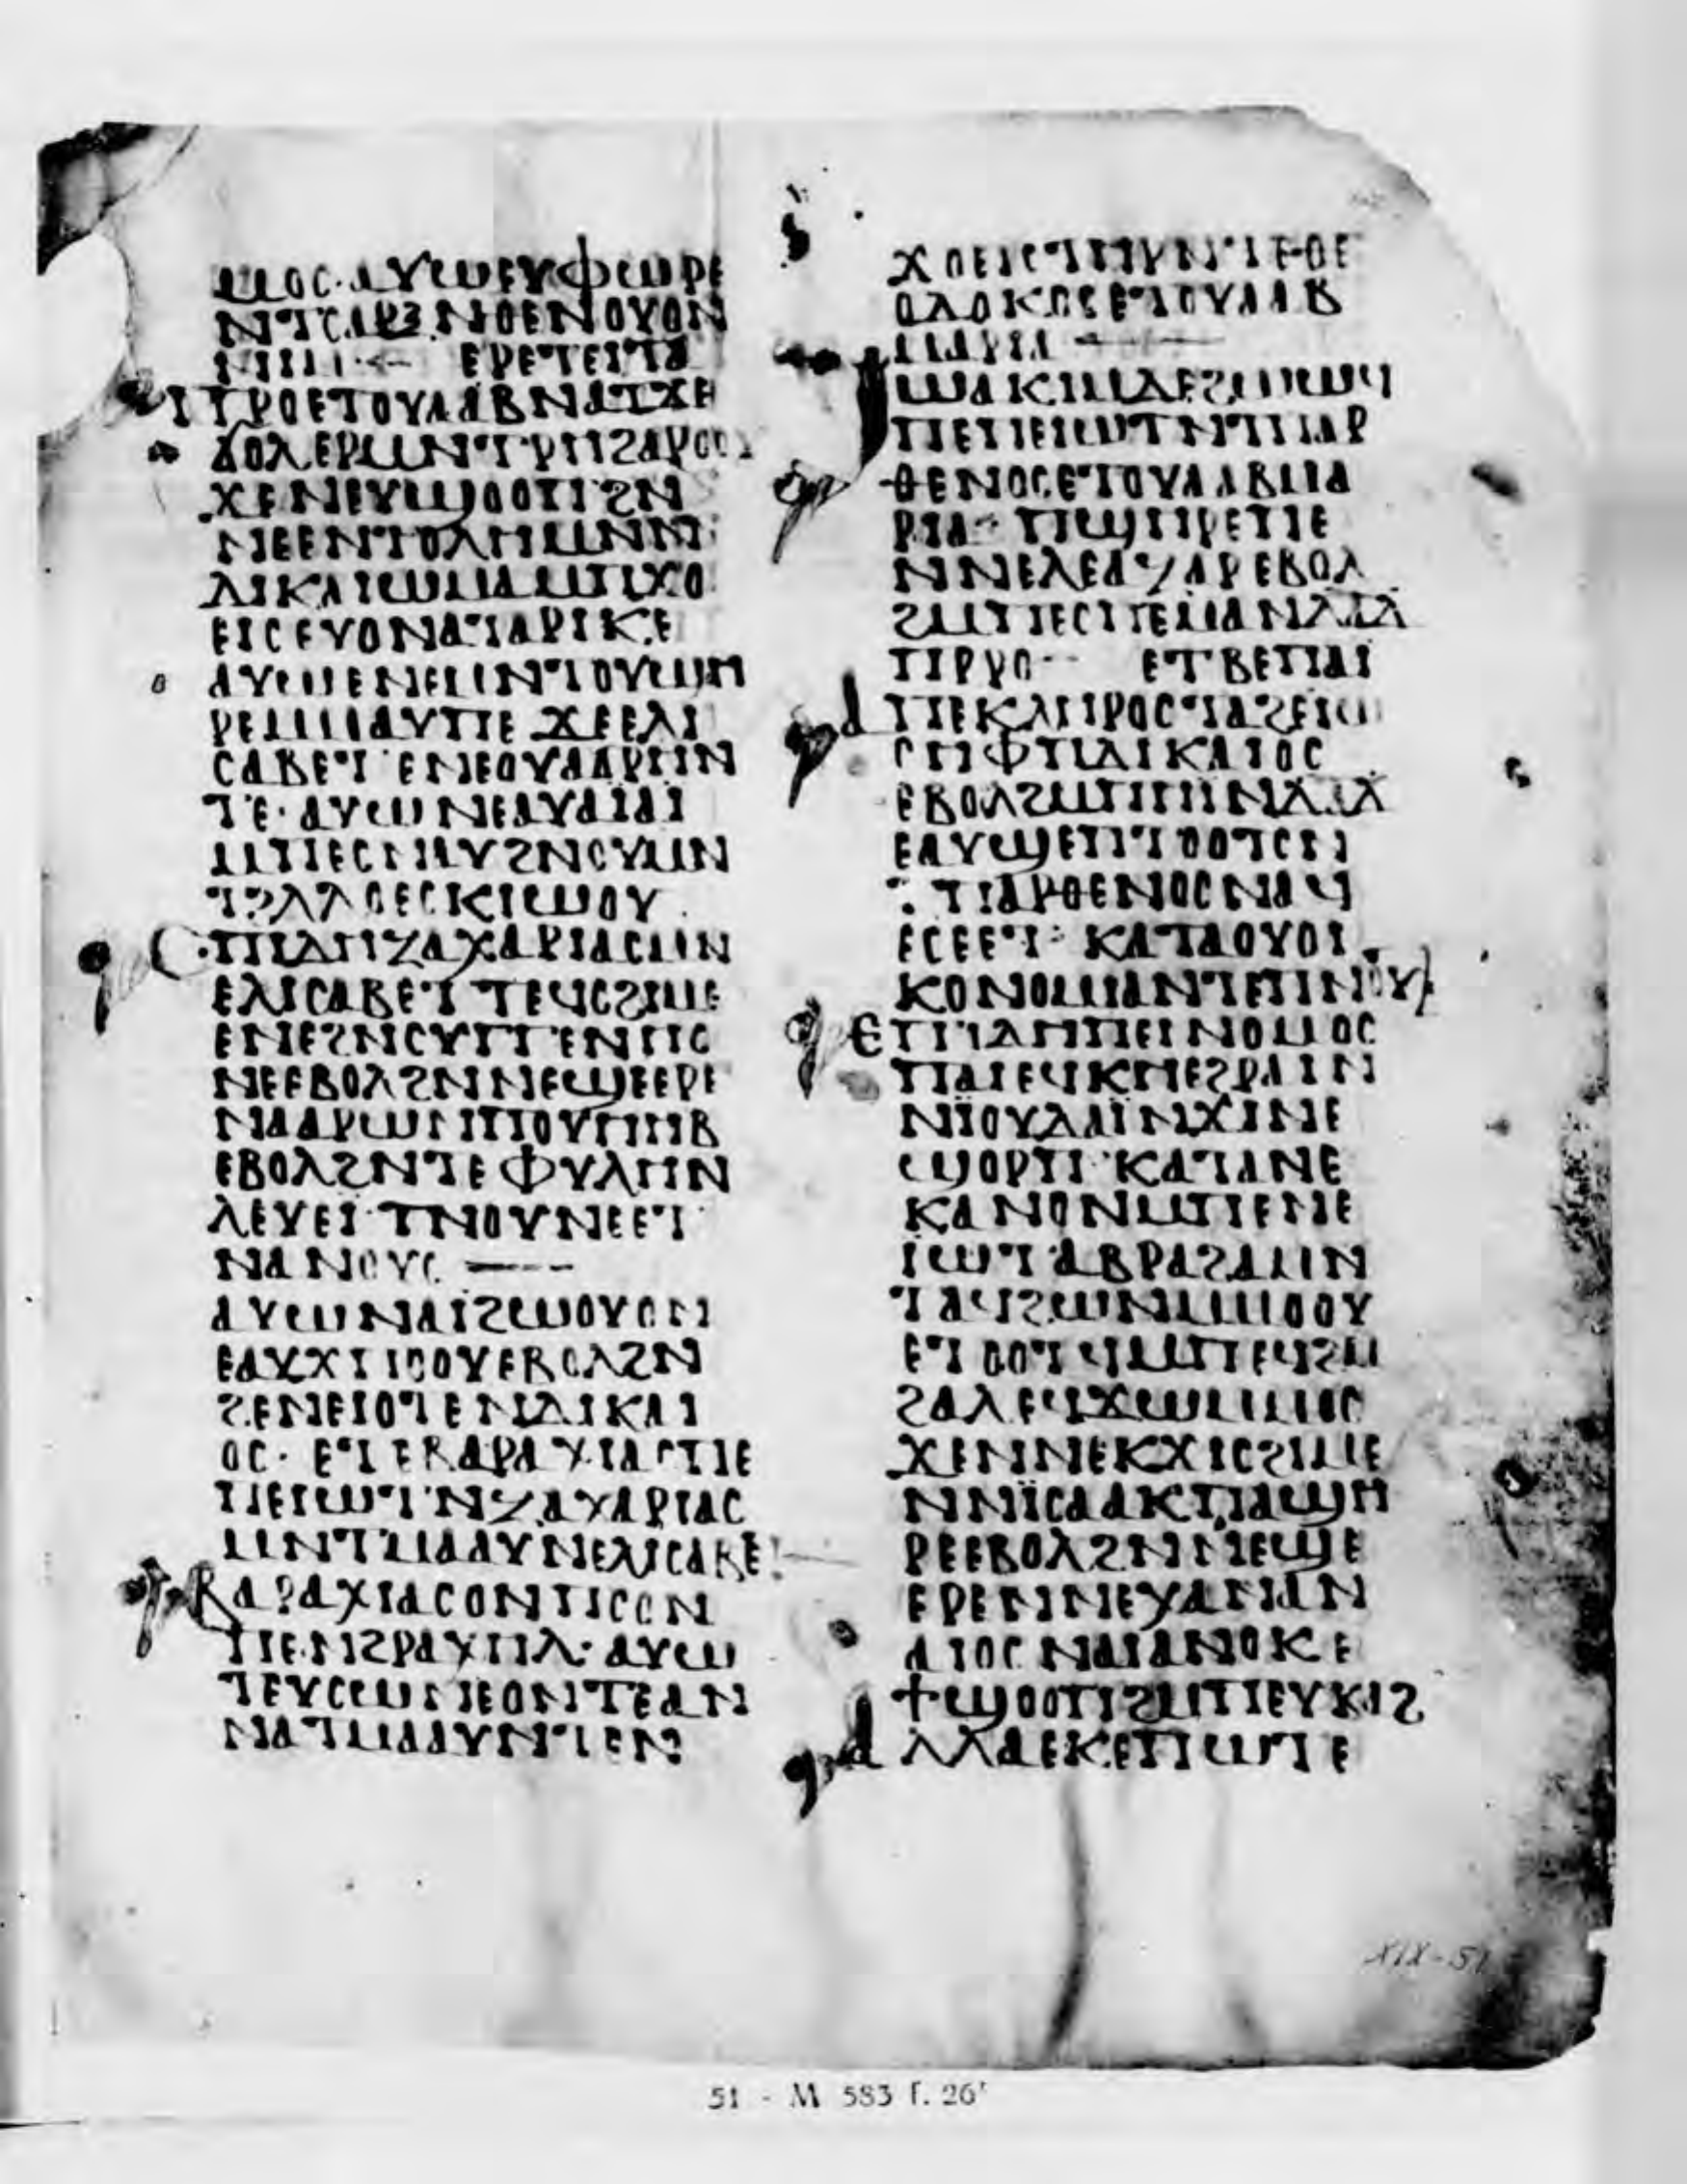 ⲙⲟⲥ· ⲁⲩⲱⲉⲩⲫⲱⲣⲉ
ⲛⲧⲥⲁⲣⲝ ⲛⲑⲉⲛⲟⲩⲟⲛ
ⲛⲓⲙ ⲉⲣⲉⲧⲉⲓⲧⲁ
ⲡⲣⲟⲉⲧⲟⲩⲁⲁⲃⲛⲁⲧϫⲉ
ϭⲟⲗⲉⲣⲙⲛⲧⲣⲏϩⲁⲣⲟⲟⲩ
ϫⲉⲛⲉⲩϣⲟⲟⲡϩⲛ
ⲛⲉⲉⲛⲧⲟⲗⲏⲙⲛⲛ
ⲇⲓⲕⲁⲓⲱⲙⲁⲙⲡϫⲟ
ⲉⲓⲥⲉⲩⲟⲛⲁⲧⲁⲣⲓⲕⲉ
ⲁⲩⲱⲉⲛⲉⲙⲛⲧⲟⲩϣⲏ
ⲣⲉⲙⲙⲁⲩⲡⲉ ϫⲉⲉⲗⲓ
ⲥⲁⲃⲉⲧ ⲉⲛⲉⲟⲩⲁϭⲣⲏⲛ
ⲧⲉ· ⲁⲩⲱⲛⲉⲁⲩⲁⲓⲁⲓ
ⲙⲡⲉⲥⲛⲁⲩϩⲛⲟⲩⲙⲛ
ⲧϩⲗⲗⲟⲉⲥⲕⲓⲱⲟⲩ
ⲉⲡⲓⲇⲏⲍⲁⲭⲁⲣⲓⲁⲥⲙⲛ
ⲉⲗⲓⲥⲁⲃⲉⲧ ⲧⲉϥⲥϩⲓⲙⲉ
ⲉⲛⲉϩⲛⲥⲩⲅⲅⲉⲛⲏⲥ
ⲛⲉⲉⲃⲟⲗϩⲛⲛⲉϣⲉⲉⲣⲉ
ⲛⲁⲁⲣⲱⲛⲡⲟⲩⲏⲏⲃ
ⲉⲃⲟⲗϩⲛⲧⲉⲫⲩⲗⲏⲛ
ⲗⲉⲩⲉⲓ ⲧⲛⲟⲩⲛⲉⲉⲧ
ⲛⲁⲛⲟⲩⲥ
ⲁⲩⲱⲛⲁⲓϩⲱⲟⲩⲟⲛ
ⲉⲁⲩϫⲡⲟⲟⲩⲉⲃⲟⲗϩⲛ
ϩⲉⲛⲉⲓⲟⲧⲉⲛⲇⲓⲕⲁⲓ
ⲟⲥ· ⲉⲧⲉⲃⲁⲣⲁⲭⲓⲁⲥⲡⲉ
ⲡⲉⲓⲱⲧⲛⲍⲁⲭⲁⲣⲓⲁⲥ
ⲙⲛⲧⲙⲁⲁⲩⲛⲉⲗⲓⲥⲁⲃⲉⲧ
ⲃⲁⲣⲁⲭⲓⲁⲥⲟⲛⲡⲥⲟⲛ
ⲡⲉⲛϩⲣⲁⲭⲏⲗ· ⲁⲩⲱ
ⲧⲉⲩⲥⲱⲛⲉⲟⲛⲧⲉⲁⲛ
ⲛⲁⲧⲙⲁⲁⲩⲛⲧⲉⲛ
ϫⲟⲉⲓⲥⲧⲏⲣⲛⲧⲉⲑⲉ
ⲟⲇⲟⲕⲟⲥⲉⲧⲟⲩⲁⲁⲃ
ⲙⲁⲣⲓⲁ
ϣⲁⲕⲓⲙⲇⲉϩⲱⲱϥ
ⲡⲉⲡⲉⲓⲱⲧⲛⲧⲡⲁⲣ
ⲑⲉⲛⲟⲥⲉⲧⲟⲩⲁⲁⲃⲙⲁ
ⲣⲓⲁ ⲡϣⲏⲣⲉⲡⲉ
ⲛⲛⲉⲗⲉⲁⲍⲁⲣⲉⲃⲟⲗ
ϩⲙⲡⲉⲥⲡⲉⲣⲙⲁⲛⲇⲁⲇ
ⲡⲣⲣⲟ ⲉⲧⲃⲉⲡⲁⲓ
ⲁⲡⲉⲕⲗⲏⲣⲟⲥⲧⲁϩⲉⲓⲱ
ⲥⲏⲫⲡⲇⲓⲕⲁⲓⲟⲥ
ⲉⲃⲟⲗϩⲙⲡⲏⲓⲛⲇⲁⲇ
ⲉⲁⲩϣⲉⲡⲧⲟⲟⲧⲥⲛ
ⲧⲡⲁⲣⲑⲉⲛⲟⲥⲛⲁϥ
ⲉⲥⲉⲉⲧ ⲕⲁⲧⲁⲟⲩⲟⲓ
ⲕⲟⲛⲟⲙⲓⲁⲛⲧⲉⲡⲛⲟⲩⲧⲉ
ⲉⲡⲓⲇⲏⲡⲉⲓⲛⲟⲙⲟⲥ
ⲡⲁⲓⲉϥⲕⲏⲉϩⲣⲁⲓⲛ
ⲛⲓⲟⲩⲇⲁⲓⲛϫⲓⲛⲉ
ϣⲟⲣⲡ ⲕⲁⲧⲁⲛⲉ
ⲕⲁⲛⲱⲛⲙⲡⲉⲛⲉ
ⲓⲱⲧⲁⲃⲣⲁϩⲁⲙⲛ
ⲧⲁϥϩⲱⲛⲙⲙⲟⲟⲩ
ⲉⲧⲟⲟⲧϥⲙⲡⲉϥϩⲙ
ϩⲁⲗⲉϥϫⲱⲙⲙⲟⲥ
ϫⲉⲛⲛⲉⲕϫⲓⲥϩⲓⲙⲉ
ⲛⲛⲓⲥⲁⲁⲕⲡⲁϣⲏ
ⲣⲉⲉⲃⲟⲗϩⲛⲛⲉϣⲉ
ⲉⲣⲉⲛⲛⲉⲭⲁⲛⲁⲛ
ⲁⲓⲟⲥⲛⲁⲓⲁⲛⲟⲕⲉ
ϯϣⲟⲟⲡϩⲙⲡⲉⲩⲕⲁϩ
ⲁⲗⲗⲁⲉⲕⲉⲡⲱⲧⲉ
XIX-51
51 - M 583 f. 26ʳ